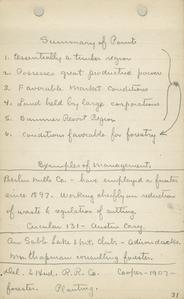 Summary of Points
1. Essentially a timber region
2. Possesses great productive power
3. Favorable Market Conditions
4. Land held by large corporations
5. Summer Resort Region
6. Conditions favorable for forestry
Examples of Management
Berlin Mills Co. - have employed a forester
since 1897. Working chiefly on reduction
of waste & regulation of cutting.
Circular 131 - Austin Cary.
Au Sable Lake Club - Adirondacks
Mr. Chapman consulting forester.
Del. & Hud. R.R. Co. Cooper - 1907 -
forester. Planting.
31